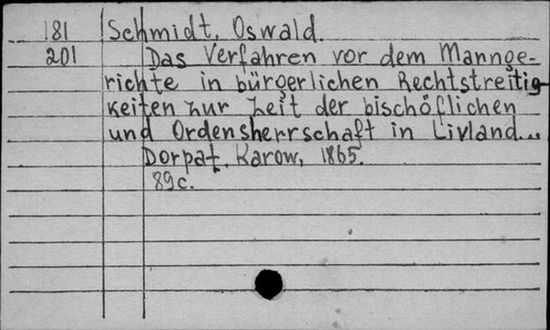 181 Schmidt, Oswald.
201 Das Verfahren vor dem Mannge-
richte in bürgerlichen Rechtstreitig-
keiten zur Zeit der bischöflichen
und Ordensherrschaft in Livland...
Dorpat, Karow, 1865.
89c.